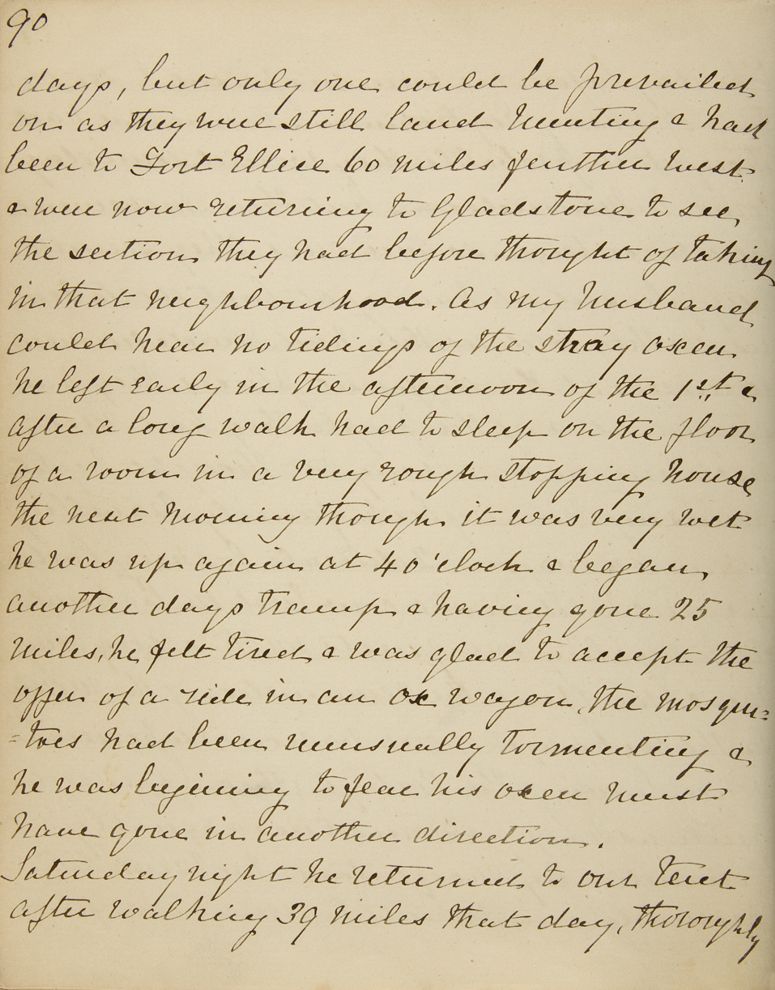 90
days, but only one could be prevailed
on as they were still land hunting & had
been to Fort Ellice 60 miles further west
& were now returning to Gladstone to see
the section they had before thought of taking
in that neighbourhood. As my husband
could hear no tidings of the stray oxen
he left early in the afternoon of the 1st &
after a long walk had to sleep on the floor
of a room in a very rough stopping house
the next morning though it was very wet
he was up again at 4 o'clock & began
another days tramp & having gone 25
miles, he felt tired & was glad to accept the
offer of a ride in an ox wagon, the mosqui=
=toes had been unusually tormenting &
he was begining to fear his oxen must
have gone in another direction.
Saturday night he returned to our tent
after walking 39 miles that day, thoroughly